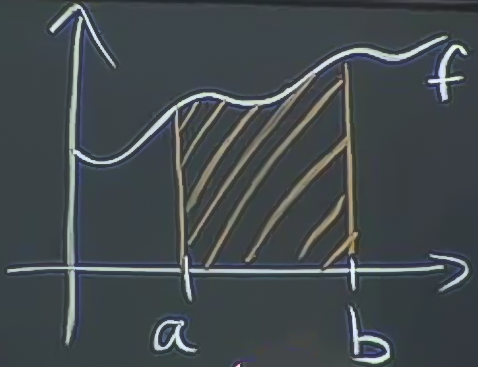 f
a
b